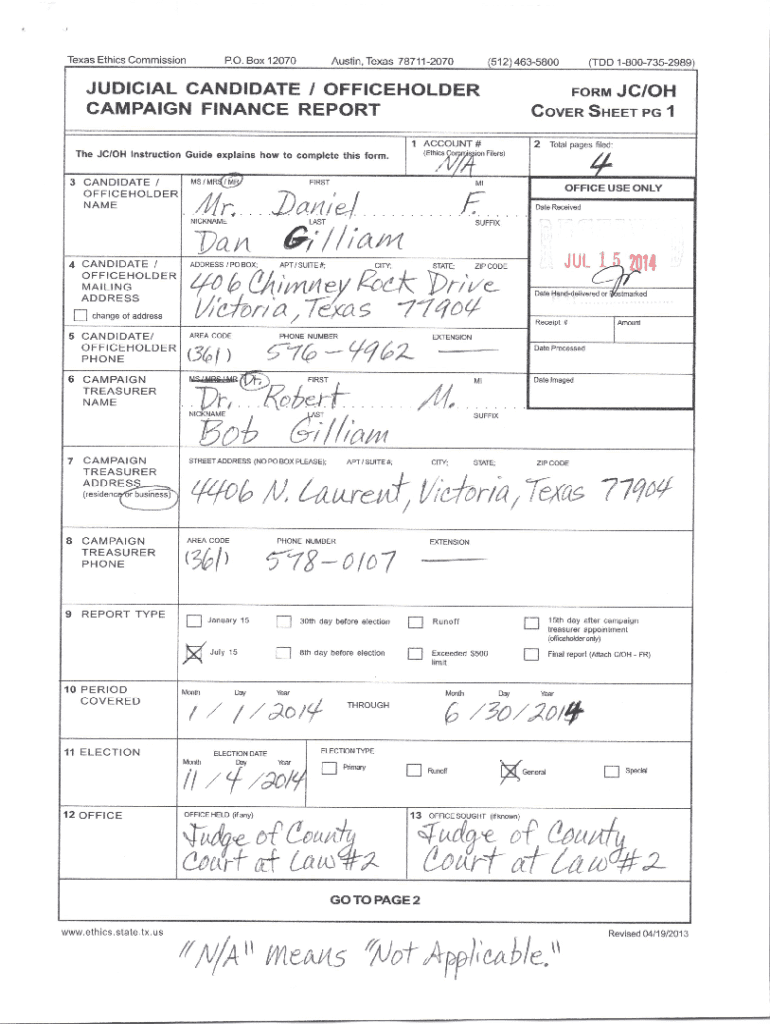 Texas Ethics Commission P.O. Box 12070 Austin, Texas 78711-2070 (512) 463-5800 (TDD 1-800-735-2989)
JUDICIAL CANDIDATE / OFFICEHOLDER CAMPAIGN FINANCE REPORT
FORM JC/OH
COVER SHEET PG 1
The JC/OH Instruction Guide explains how to complete this form.
1 ACCOUNT #
(Ethics Commission Filers)
N/A
2 Total pages filed:
4
3 CANDIDATE / OFFICEHOLDER NAME
MS / MRS / MR FIRST MI
Mr. Daniel F.
NICKNAME LAST SUFFIX
Dan Gilliam
OFFICE USE ONLY
Date Received
JUL 15 2014
Date Hand-delivered or Postmarked
Receipt # Amount
Date Processed
Date Imaged
4 CANDIDATE / OFFICEHOLDER MAILING ADDRESS
change of address
ADDRESS / PO BOX; APT / SUITE #; CITY; STATE; ZIP CODE
406 Chimney Rock Drive
Victoria, Texas 77904
5 CANDIDATE/ OFFICEHOLDER PHONE
AREA CODE PHONE NUMBER EXTENSION
(361) 576-4962 —
6 CAMPAIGN TREASURER NAME
MS / MRS / MR Dr. FIRST MI
Dr. Robert M.
NICKNAME LAST SUFFIX
Bob Gilliam
7 CAMPAIGN TREASURER ADDRESS
(residence or business)
STREET ADDRESS (NO PO BOX PLEASE); APT / SUITE #; CITY; STATE; ZIP CODE
4406 N. Laurent, Victoria, Texas 77904
8 CAMPAIGN TREASURER PHONE
AREA CODE PHONE NUMBER EXTENSION
(361) 578-0107 —
9 REPORT TYPE
January 15 30th day before election Runoff 15th day after campaign treasurer appointment (officeholder only)
July 15 8th day before election Exceeded $500 limit Final report (Attach C/OH - FR)
10 PERIOD COVERED
Month Day Year Month Day Year
1 / 1 / 2014 THROUGH 6 / 30 / 2014
11 ELECTION
ELECTION DATE ELECTION TYPE
Month Day Year
11 / 4 / 2014 Primary Runoff General Special
12 OFFICE
OFFICE HELD (if any)
Judge of County
Court at Law #2
13 OFFICE SOUGHT (if known)
Judge of County
Court at Law #2
GO TO PAGE 2
www.ethics.state.tx.us Revised 04/19/2013
"N/A" means "Not Applicable."